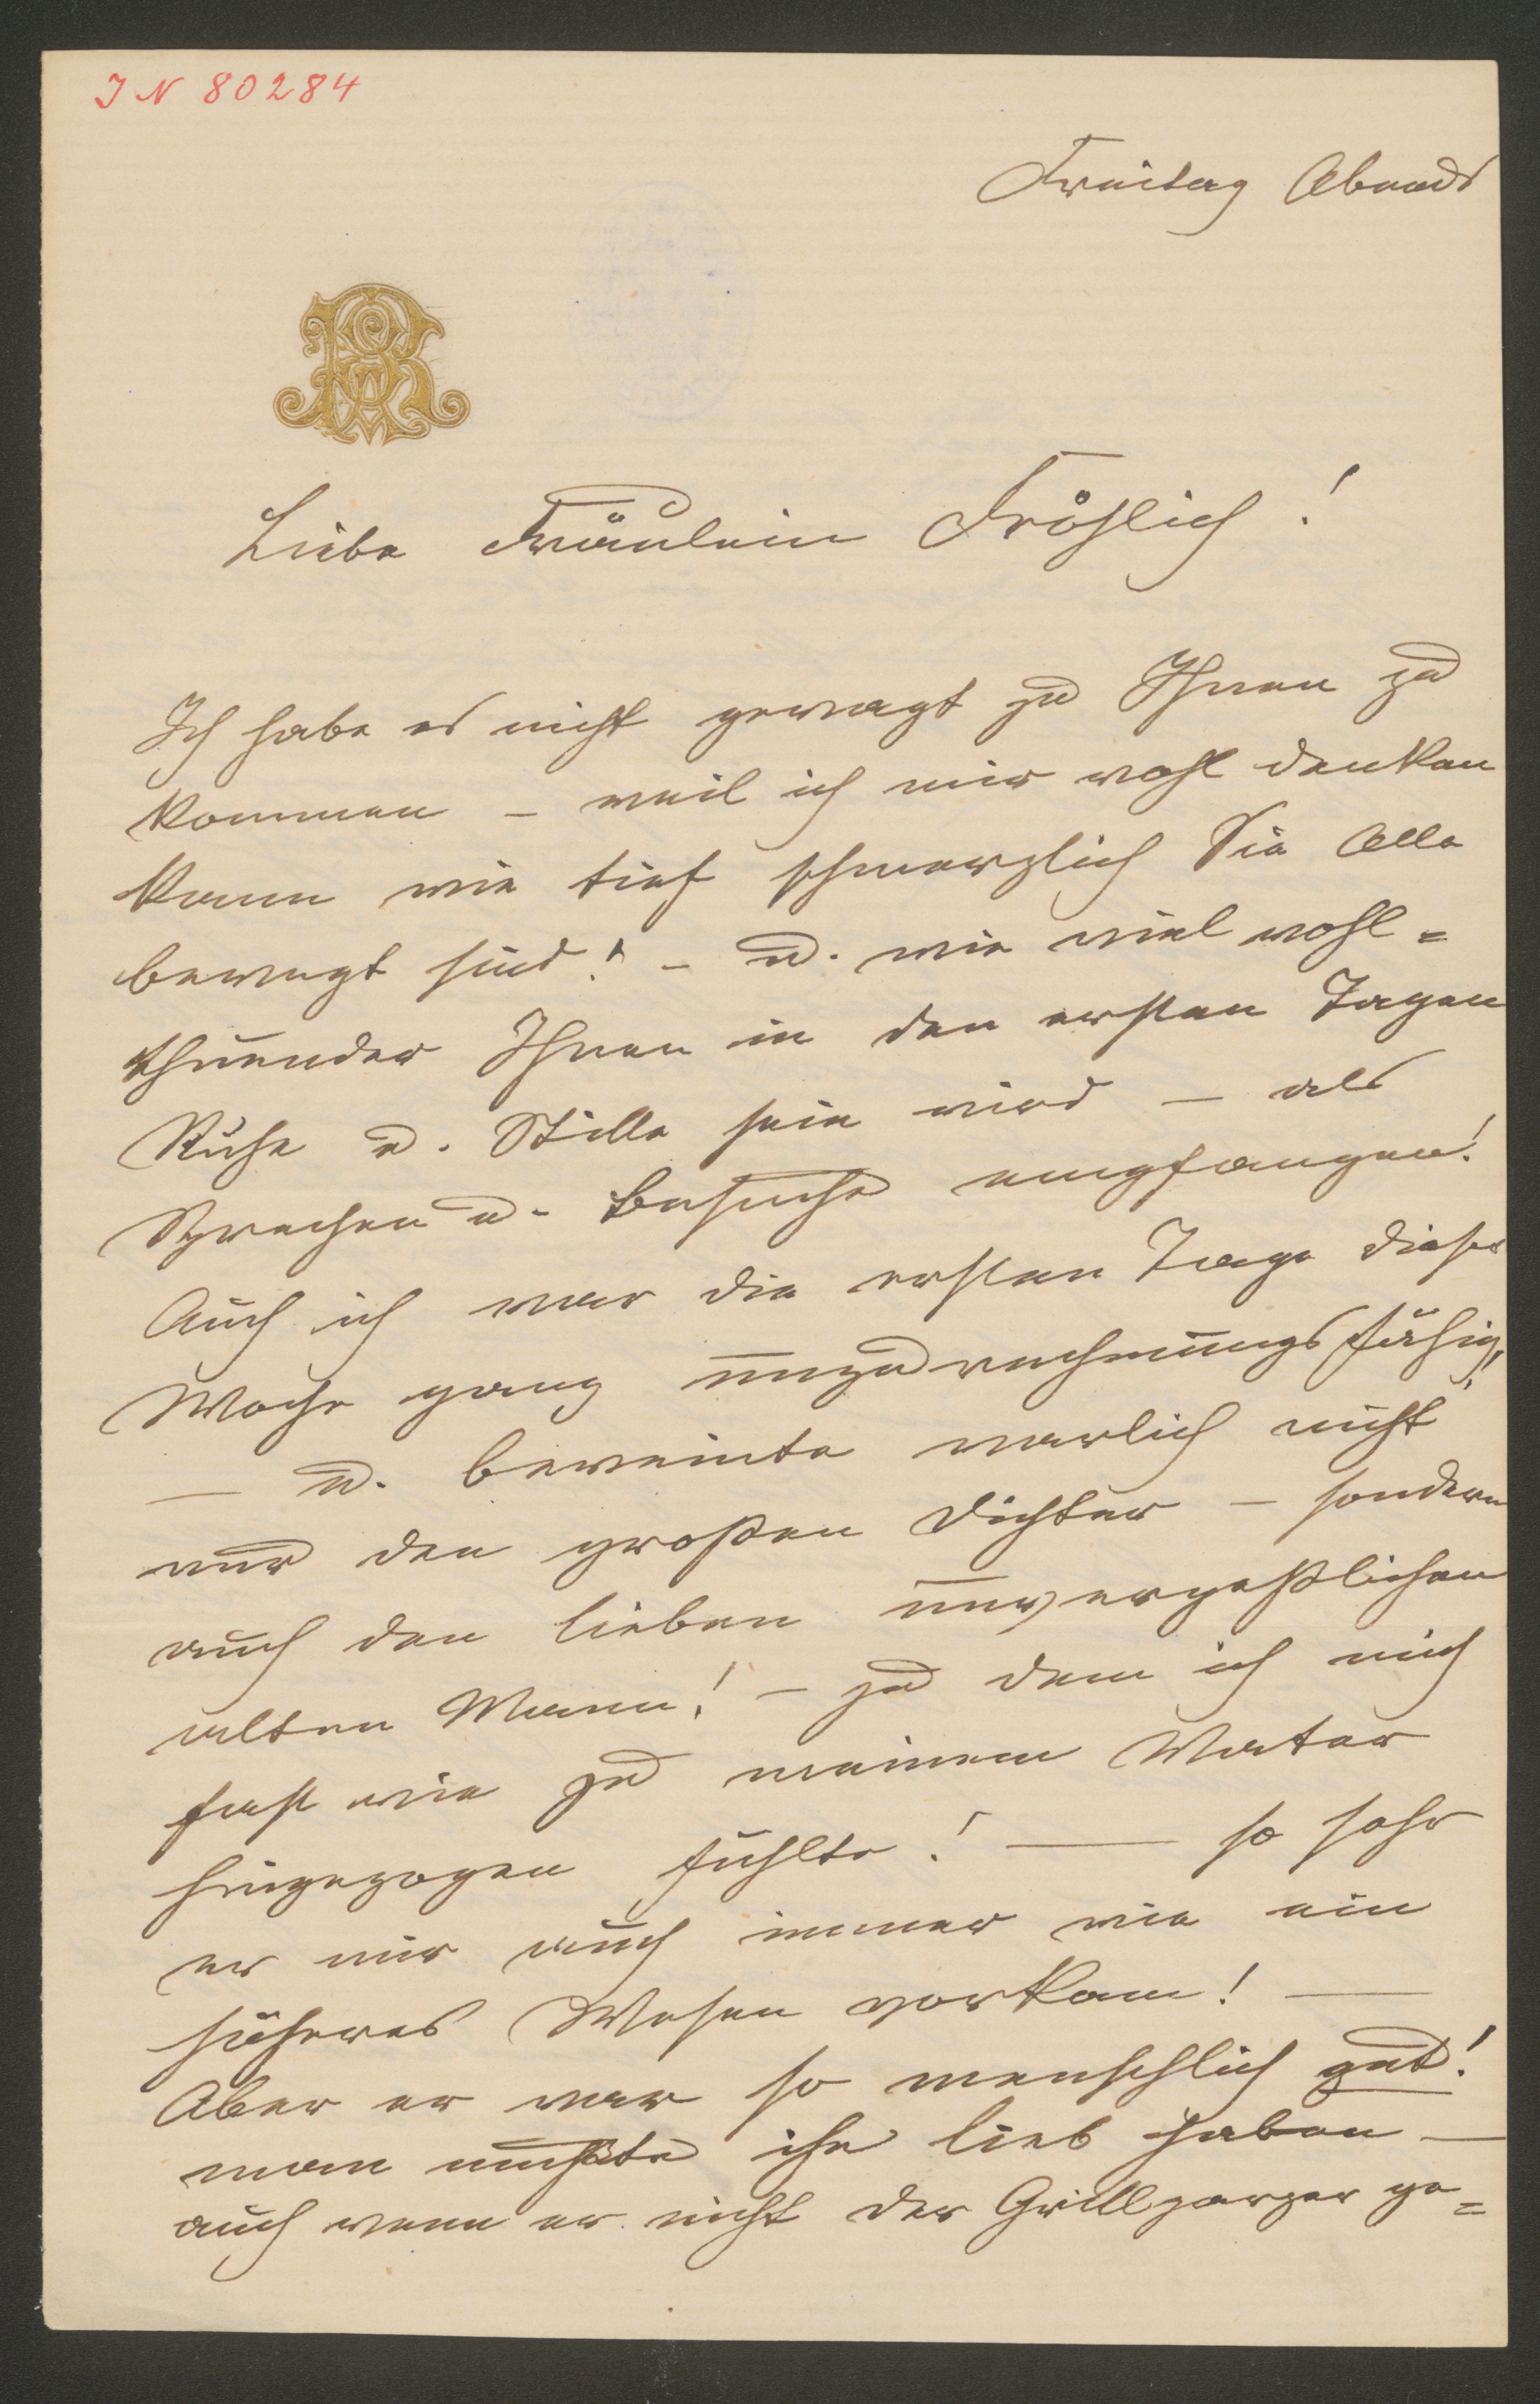 IN 80284
Freitag Abends
Liebe Fräulein Fröhlich!
Ich habe es nicht gewagt zu Ihnen zu
kommen – weil ich mir wohl denken
kann wie tief schmerzlich Sie Alle
bewegt sind! – u. wie viel wohl=
thuender Ihnen in den ersten Tagen
Ruhe u. Stille sein wird – als
Sprechen u. Besuche empfangen!
Auch ich war die ersten Tage dieser
Woche ganz unzurechnungsfähig!
– u. beweinte warlich nicht
nur den großen Dichter – sondern
auch den lieben unvergeßlichen
alten Mann! – zu dem ich mich
fast wie zu meinem Vater
hingezogen fühlte! — so sehr
er mir auch immer wie ein
höheres Wesen vorkam! —
Aber er war so menschlich gut!
man mußte ihn lieb haben —
auch wenn er nicht der Grillparzer ge=